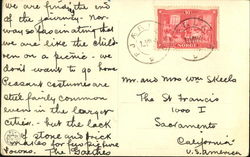 we are finding the end
of the journey - Nor-
way so fascinating that
we are like the child-
ren on a picnic - we
don't want to go home
Peasant costumes are
still fairly common
even in the larger
cities - but the lack
of stone and brick
makes for
towns. The
NORGE
Mr. and Mrs Wm Skeels
The St Francis
1000 I
Sacramento
California
U.S. America